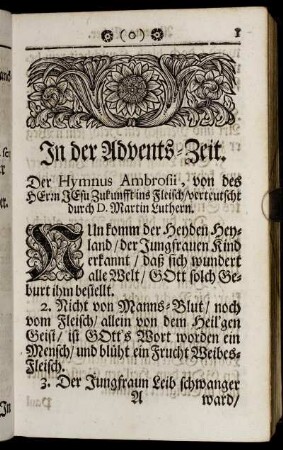 (o) 1
In der Advents-Zeit.
Der Hymnus Ambrosii, von des
HErrn JEsu Zukunfft ins Fleisch/verteutscht
durch D. Martin Luthern.
NUn komm der Heyden Hey-
land/ der Jungfrauen Kind
erkannt/ daß sich wundert
alle Welt/ GOtt solch Ge-
burt ihm bestellt.
2. Nicht von Manns-Blut/ noch
vom Fleisch/ allein von dem Heil'gen
Geist/ ist GOtt's Wort worden ein
Mensch/ und blüht ein Frucht Weibes-
Fleisch.
3. Der Jungfraun Leib schwanger
A ward/